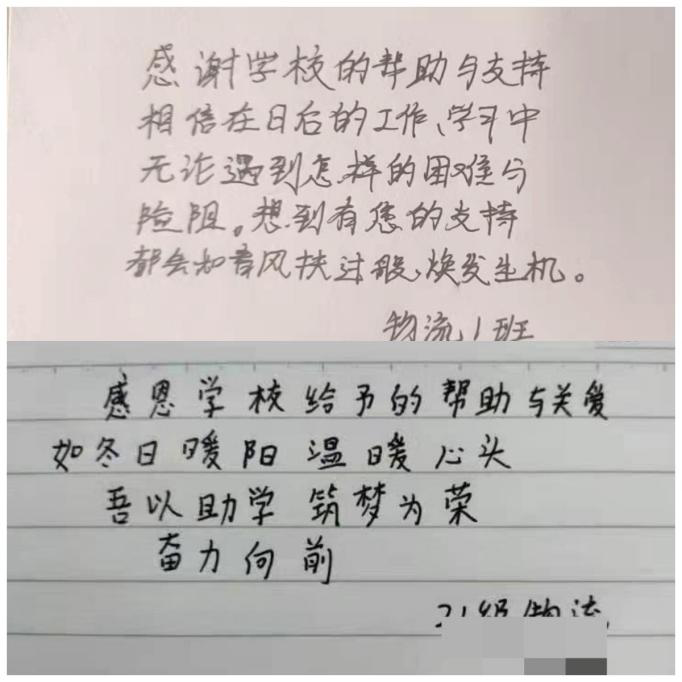 感谢学校的帮助与支持
相信在日后的工作、学习中
无论遇到怎样的困难与
险阻。想到有您的支持
都会如春风扶过般,焕发生机。
物流1班
感恩学校给予的帮助与关爱
如冬日暖阳温暖心头
吾以助学筑梦为荣
奋力向前
21级物流